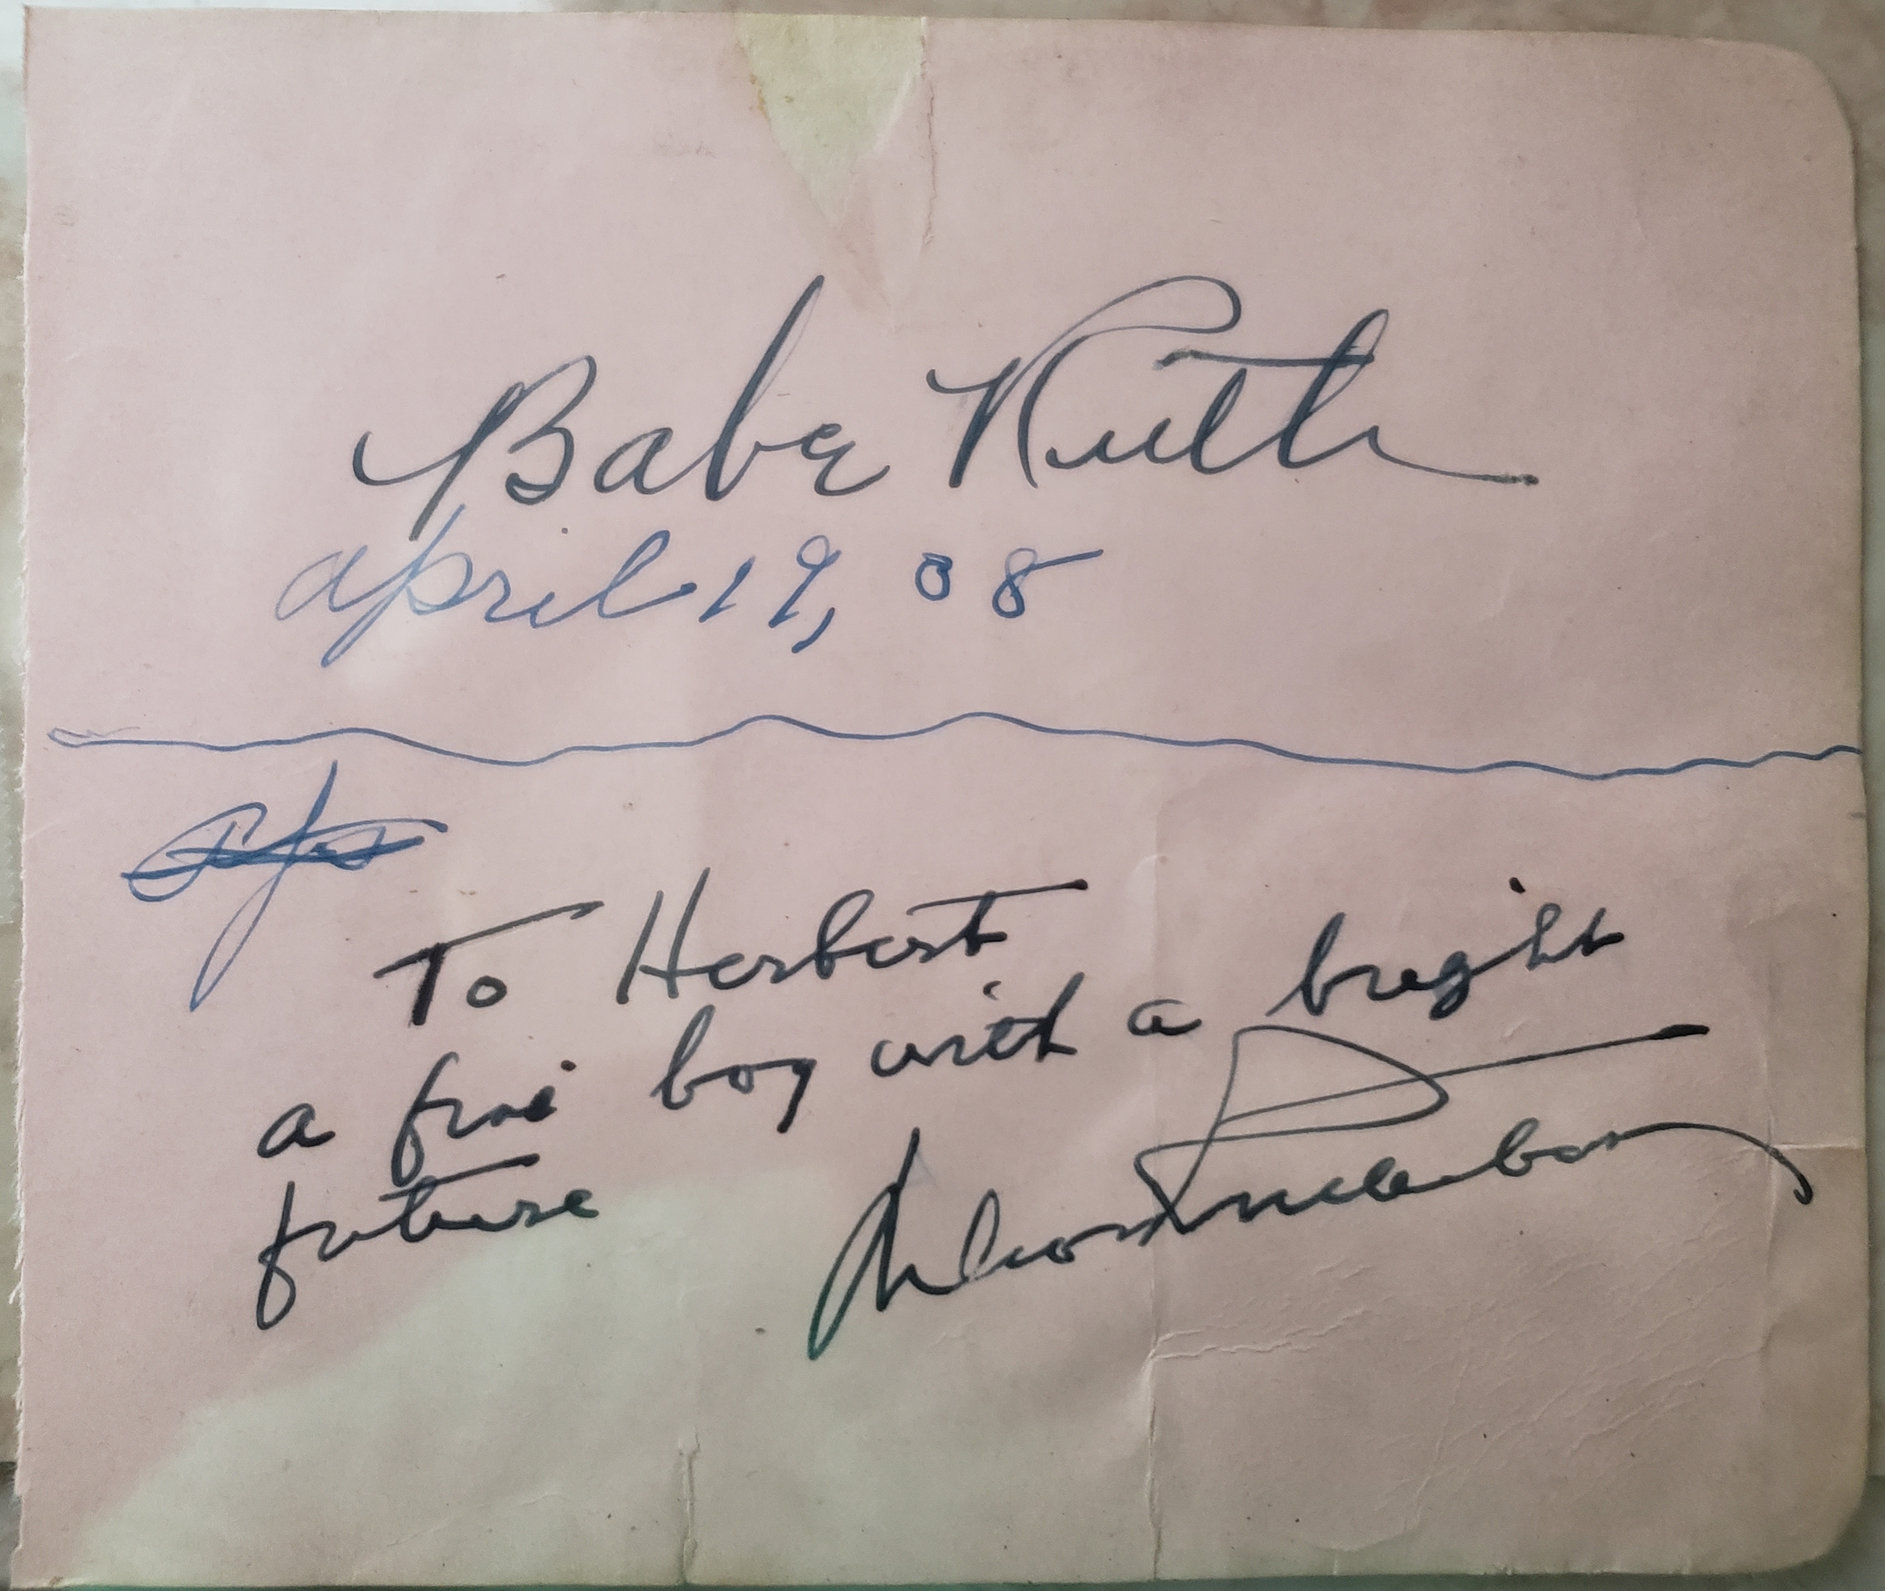 Babe Ruth
april 19, 38
To Herbert
a fine boy with a bright
future